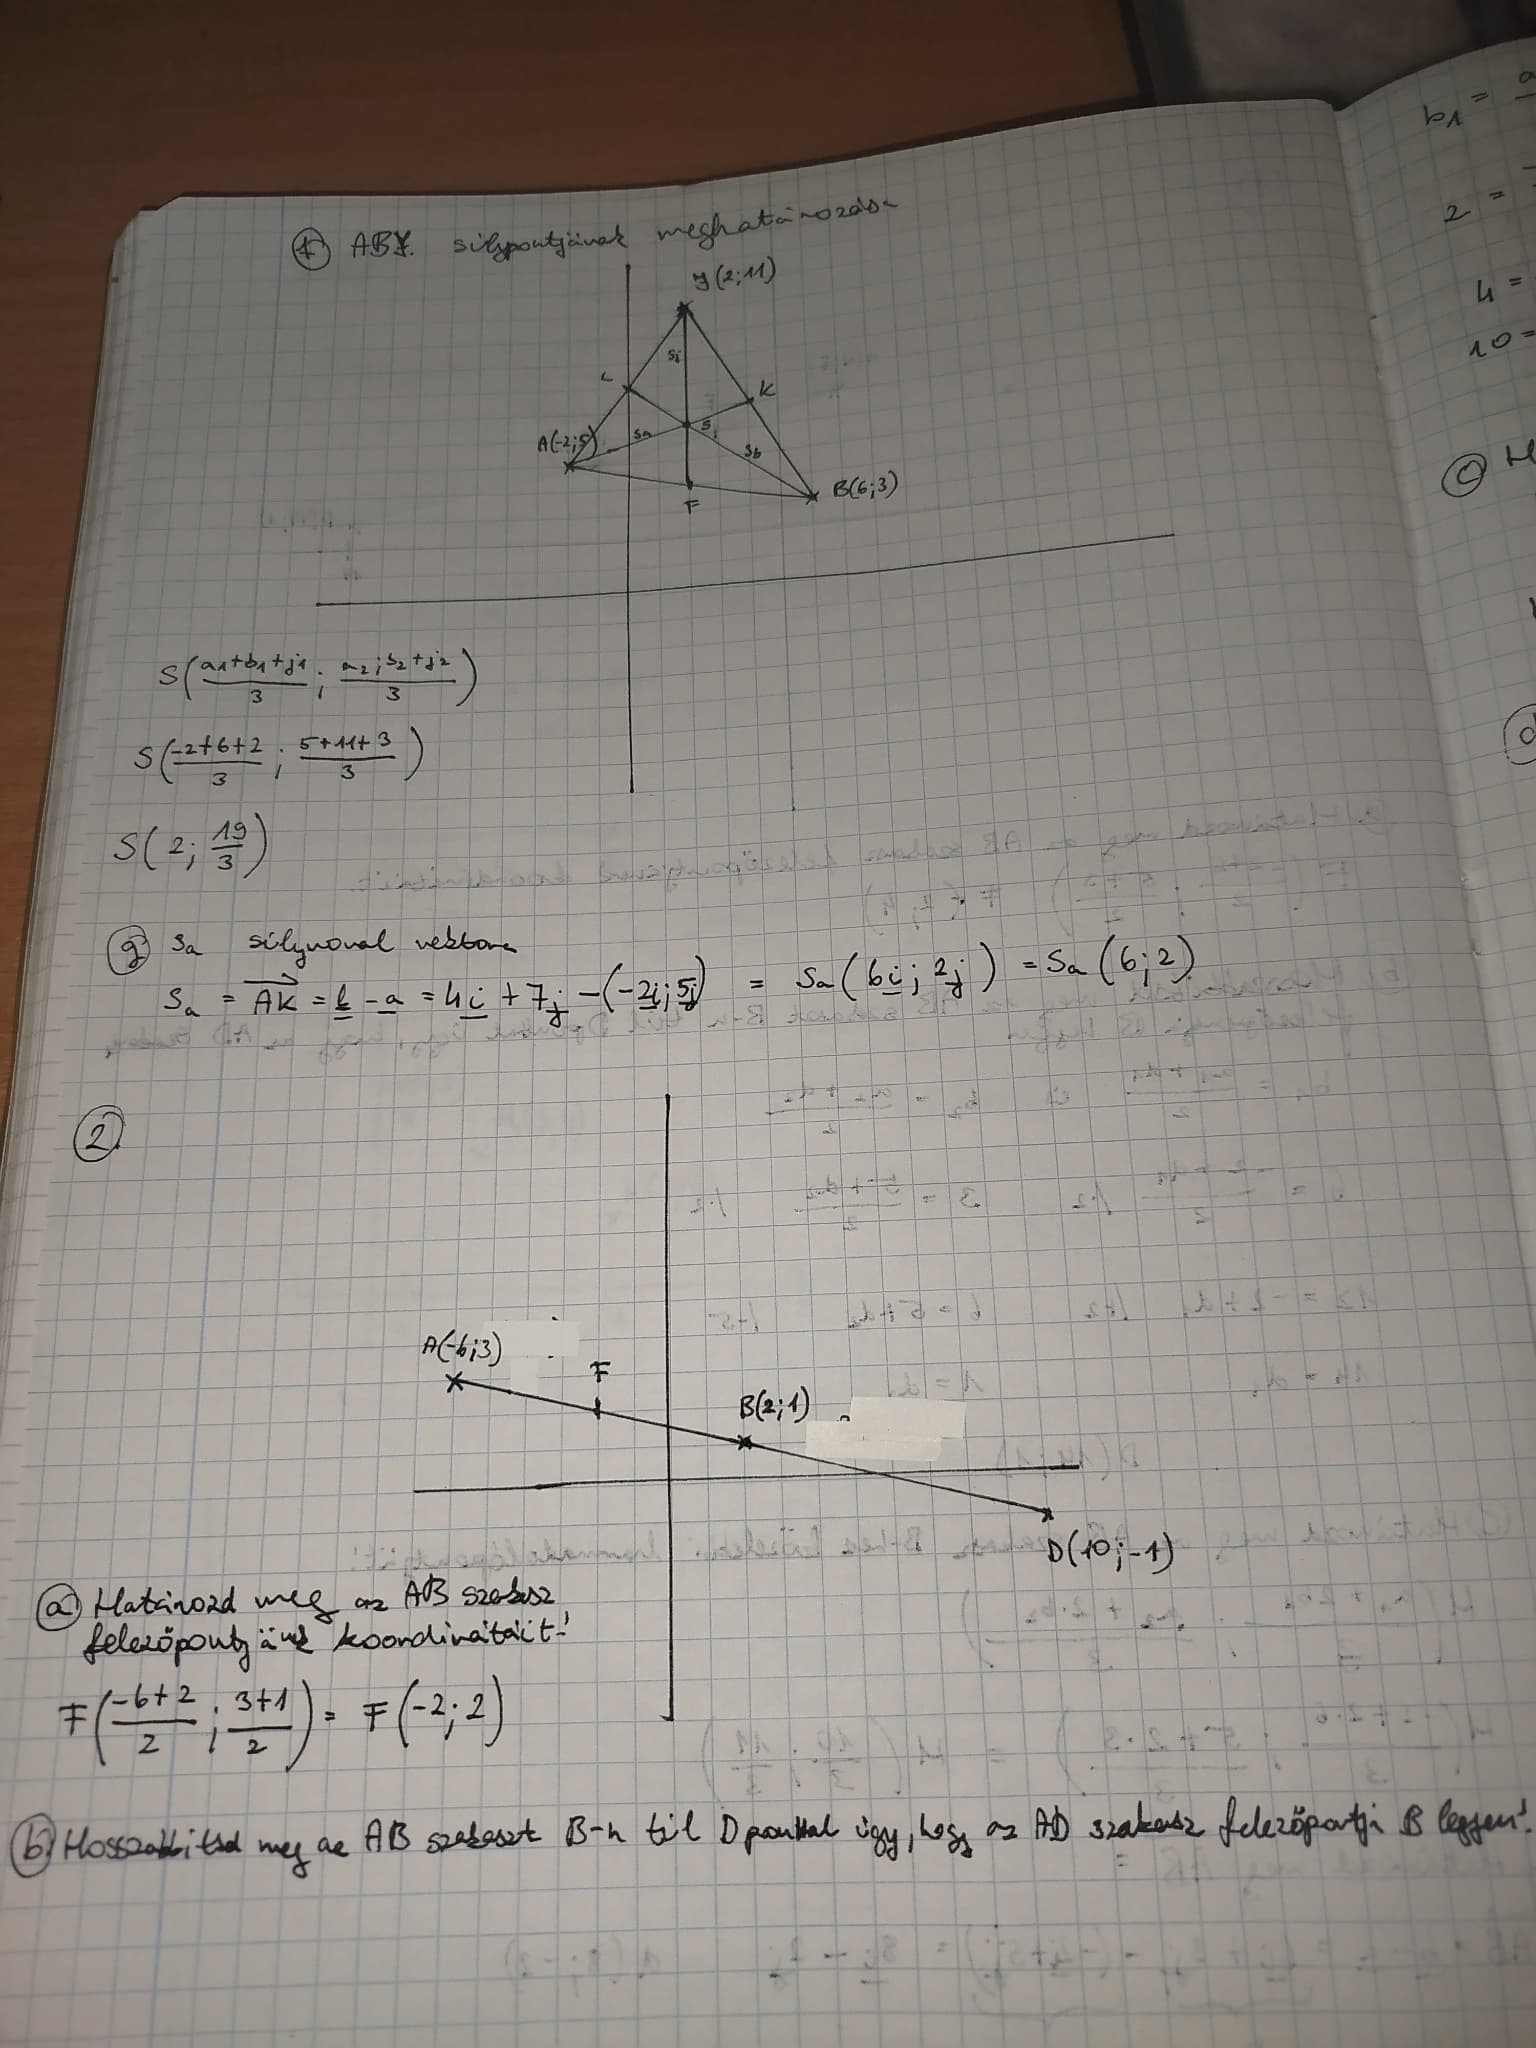 f ABJ. súlypontjának meghatározása
J(2;11)
si
L
K
A(-2;5)
sa
S
sb
B(6;3)
F
S(a1+b1+j1/3 ; a2;b2+j2/3)
S(-2+6+2/3 ; 5+11+3/3)
S(2; 19/3)
g sa súlyvonal vektora
Sa = AK = k - a = 4i + 7j - (-2i; 5j) = Sa(6i; 2j) = Sa(6; 2)
2.
A(-6;3)
F
B(2;1)
D(10;-1)
a) Határozd meg az AB szakasz
felezőpontjának koordinátáit!
F(-6+2/2 ; 3+1/2) = F(-2; 2)
b) Hosszabbítsd meg az AB szakaszt B-n túl D ponttal úgy, hogy az AD szakasz felezőpontja B legyen!
b1 = a
2 =
4 =
10 =
c
d